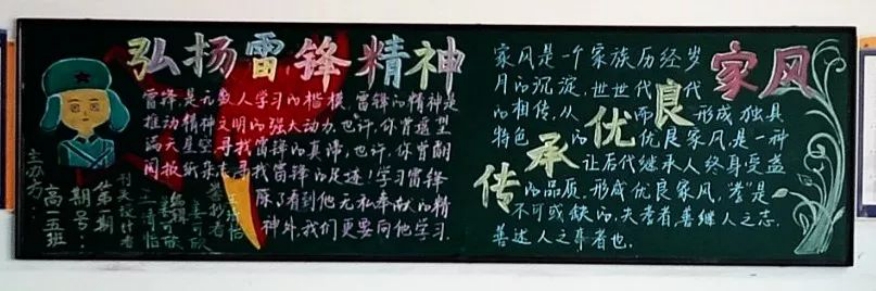 弘扬雷锋精神
雷锋,是无数人学习的楷模,雷锋的精神是
推动精神文明的强大动力,也许,你曾遥望
满天星空寻找雷锋的真谛,也许,你曾翻
阅报纸杂志寻找雷锋的足迹!学习雷锋
除了看到他无私奉献的精
神外,我们更要向他学习.
主办方:
高一五班
期号:
第一期
家风
传承优良
家风是一个家族历经岁
月的沉淀,世世代代
的相传,从而形成独具
特色的优良家风,是一种
让后代继承人终身受益
的品质.形成优良家风,"孝"是
不可或缺的.夫孝者,善继人之志,
善述人之事者也.